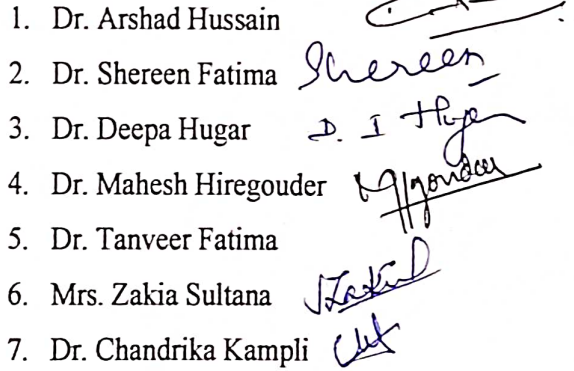 1. Dr. Arshad Hussain
2. Dr. Shereen Fatima Shereen
3. Dr. Deepa Hugar D. I Hugar
4. Dr. Mahesh Hiregouder
5. Dr. Tanveer Fatima
6. Mrs. Zakia Sultana
7. Dr. Chandrika Kampli